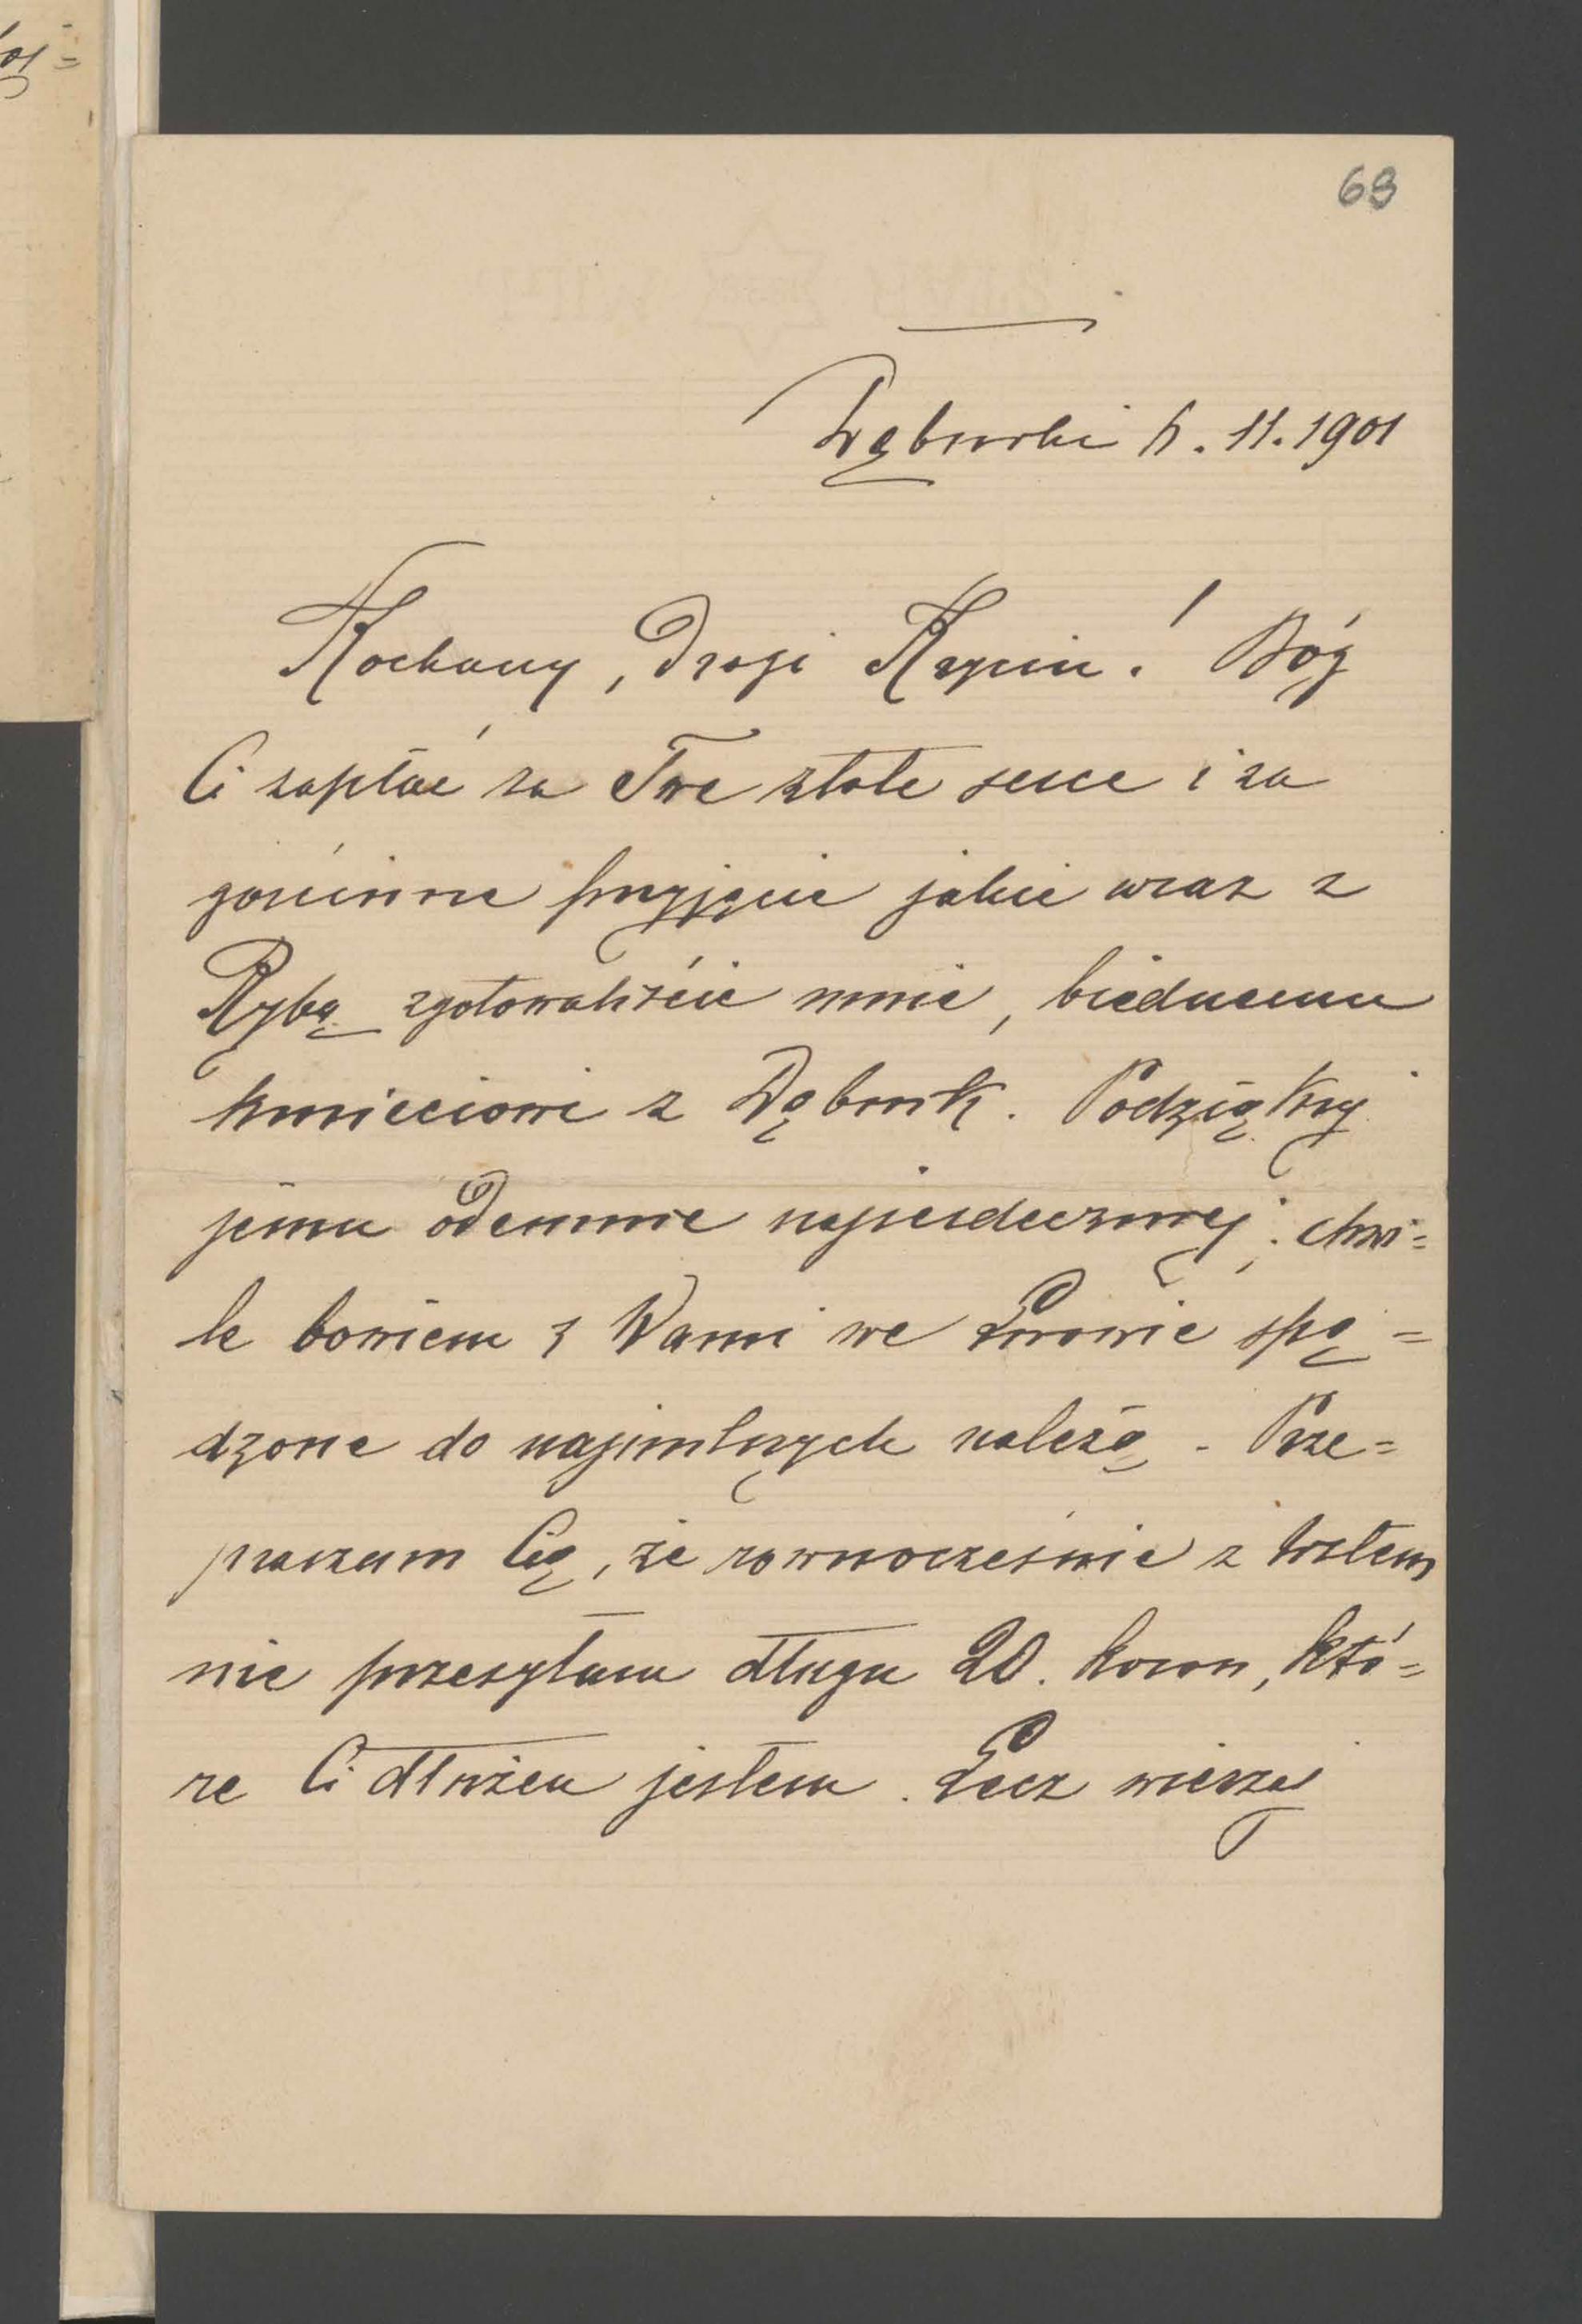 68
Dąbrówki 5. 11. 1901
Kochany, drogi Rysiu! Bóg
Ci zapłać za Twe złote serce i za
gościnne przyjęcie jakie wraz z
Rybą zgotowaliście mnie, biednemu
kmieciowi z Dąbrówk. Podziękuj
jemu odemnie najserdeczniej; chwi=
le bowiem z Wami we Lwowie spę=
dzone do najmilszych należą. Prze=
praszam Cię, że równocześnie z listem
nie przesyłam długu 20. koron, któ=
re Ci dłużen jestem. Lecz wierzaj